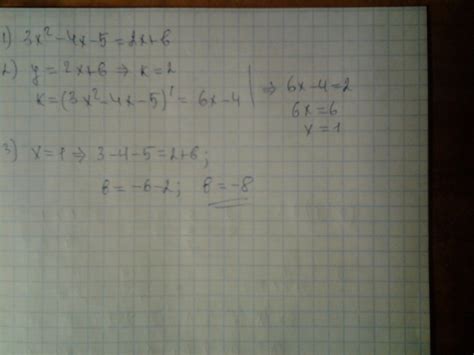 1) 3x² - 4x - 5 = 2x + b
2) y = 2x + b ⇒ k = 2
k = (3x² - 4x - 5)' = 6x - 4 | ⇒ 6x - 4 = 2
6x = 6
x = 1
3) x = 1 ⇒ 3 - 4 - 5 = 2 + b;
b = -6 - 2; b = -8